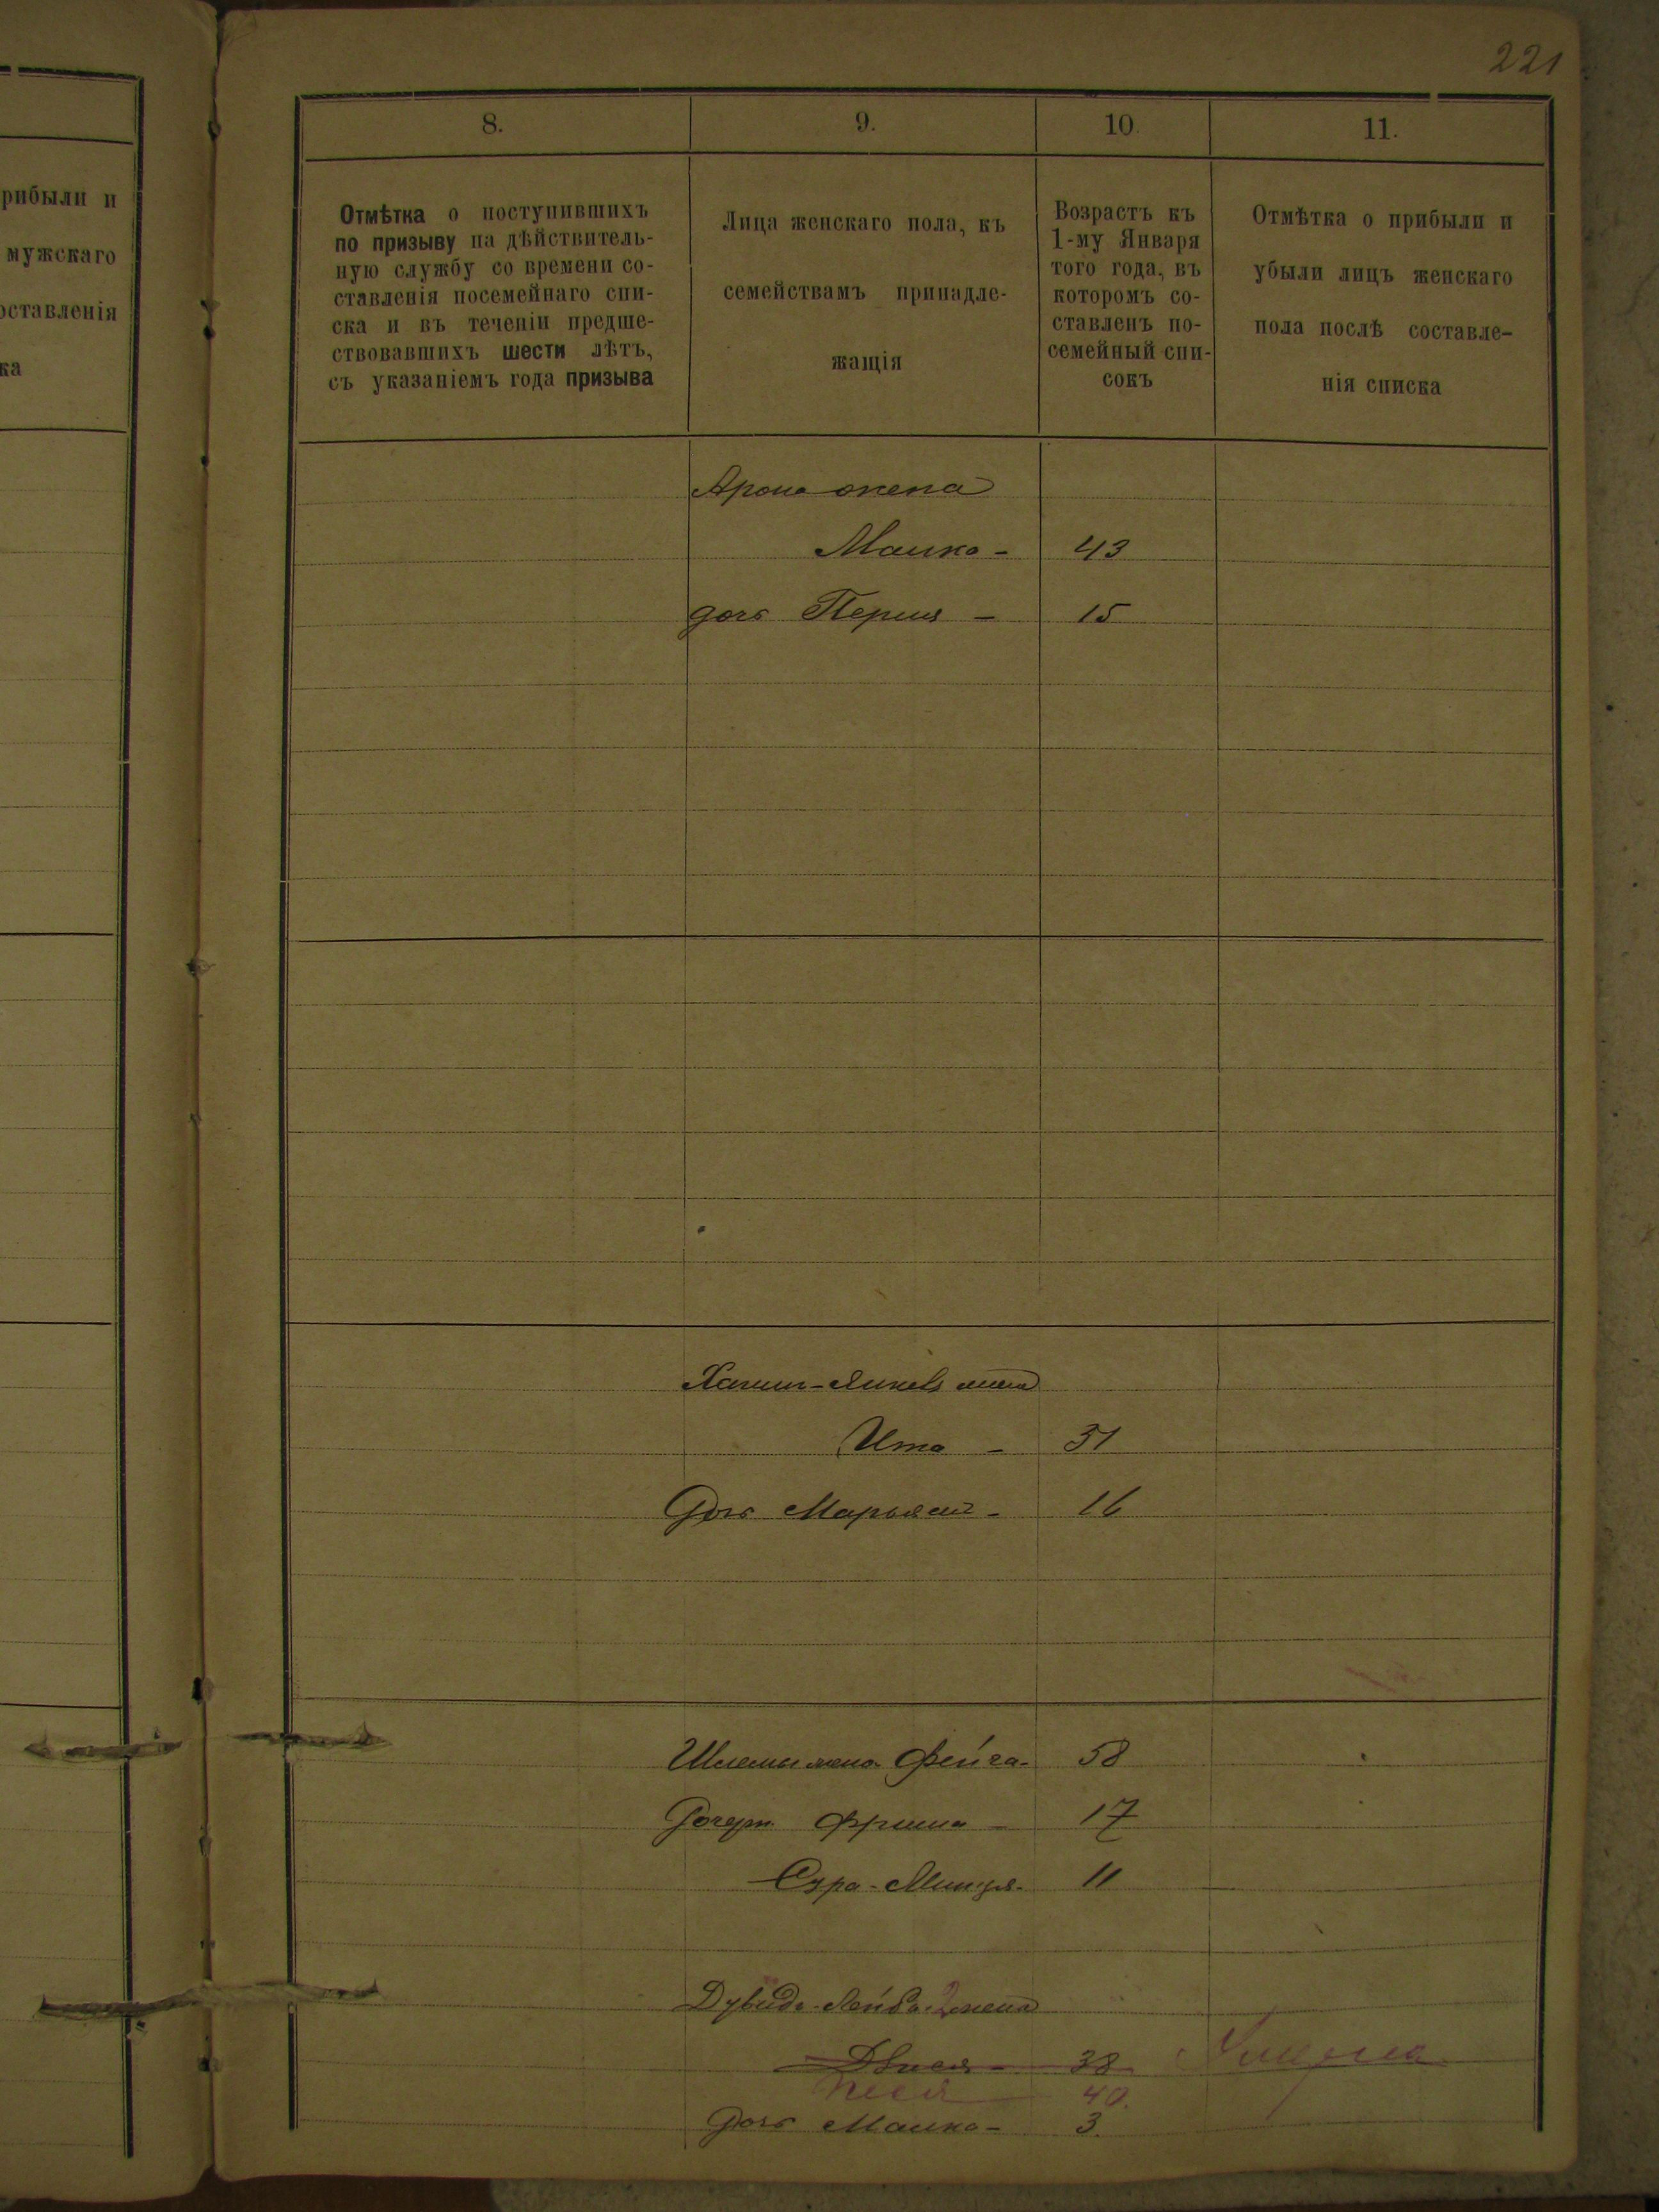 221
рибыли и
мужскаго
оставленія
ка
8.
9.
10.
11.
Отмѣтка о поступившихъ
по призыву на дѣйствитель-
ную службу со времени со-
ставленія посемейнаго спи-
ска и въ теченіи предше-
ствовавшихъ шести лѣтъ,
съ указаніемъ года призыва
Лица женскаго пола, къ
семействамъ принадле-
жащія
Возрастъ къ
1-му Января
того года, въ
которомъ со-
ставленъ по-
семейный спи-
сокъ
Отмѣтка о прибыли и
убыли лицъ женскаго
пола послѣ составле-
нія списка
Арона жена
Малка - 43
дочь Перля - 15
жена
Ита - 31
Дочь Марьям - 16
Шлемы жена Фейга - 58
Дочери Фрима - 17
Сура-Минця - 11
Дувида-Лейба 2 жена
38 Умерла
Песя 40.
Дочь Малка - 3.